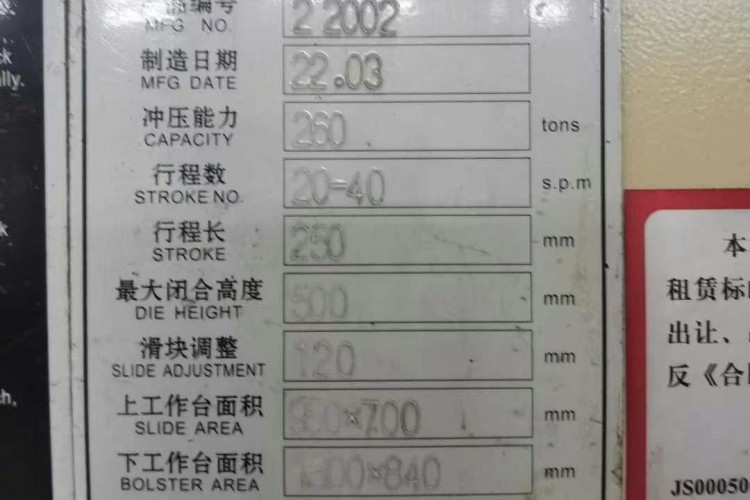 品编号 2 2002
MFG NO.
制造日期 22.03
MFG DATE
冲压能力 260 tons
CAPACITY
行程数 20-40 s.p.m
STROKE NO.
行程长 250 mm
STROKE
最大闭合高度 500 mm
DIE HEIGHT
滑块调整 120 mm
SLIDE ADJUSTMENT
上工作台面积 ×700 mm
SLIDE AREA
下工作台面积 ×840 mm
BOLSTER AREA
本
租赁标
出让、
反《合
JS00050
ck
lly.
k
ch,